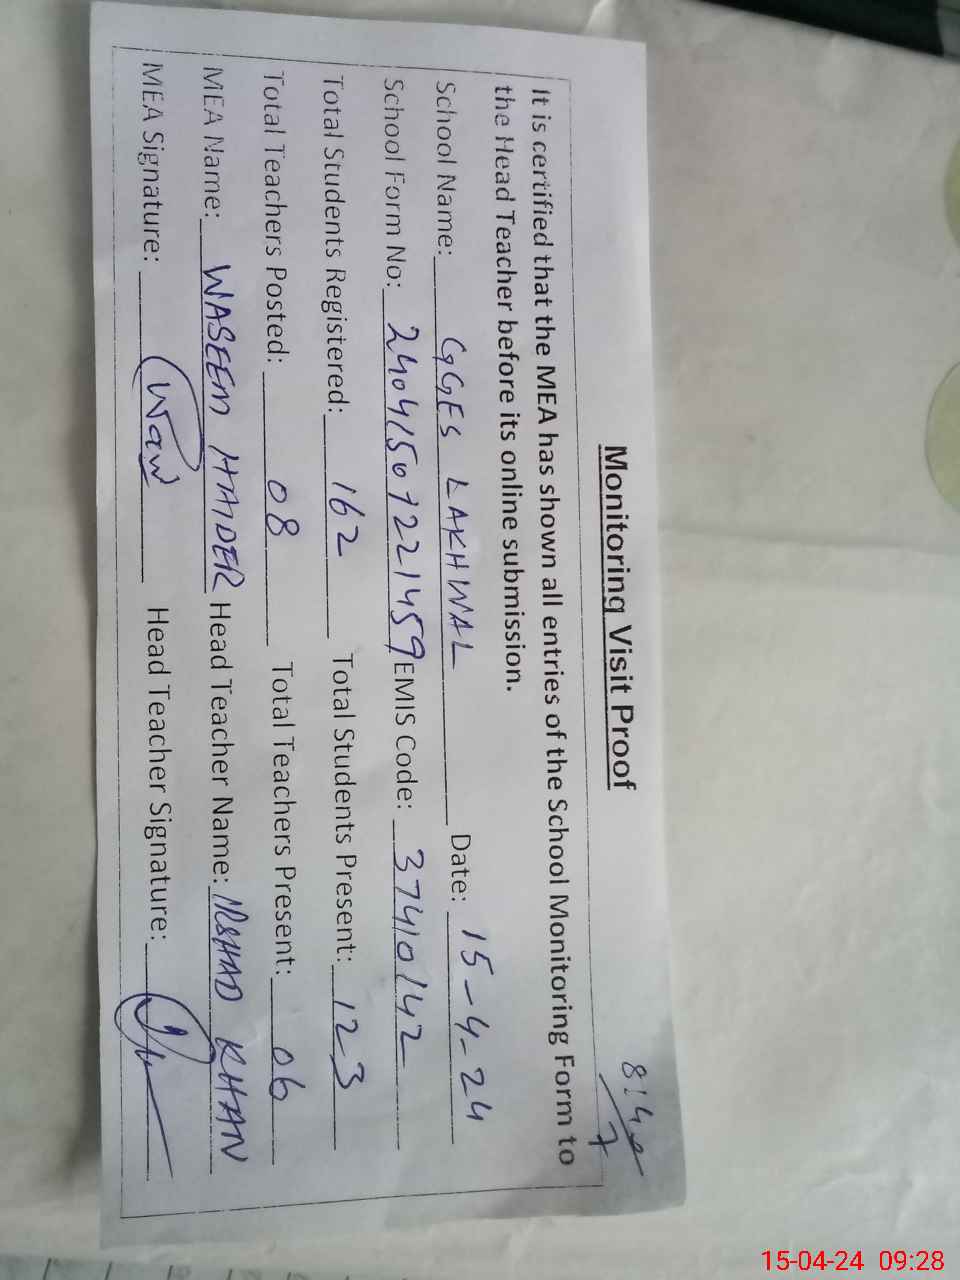 8:42
7
Monitoring Visit Proof
It is certified that the MEA has shown all entries of the School Monitoring Form to
the Head Teacher before its online submission.
School Name: GGES LAKHWAL Date: 15-4-24
School Form No: 24041507221459 EMIS Code: 37410142
Total Students Registered: 162 Total Students Present: 123
Total Teachers Posted: 08 Total Teachers Present: 06
MEA Name: WASEEM HAIDER Head Teacher Name: IRSHAD KHAN
MEA Signature: Head Teacher Signature:
15-04-24 09:28